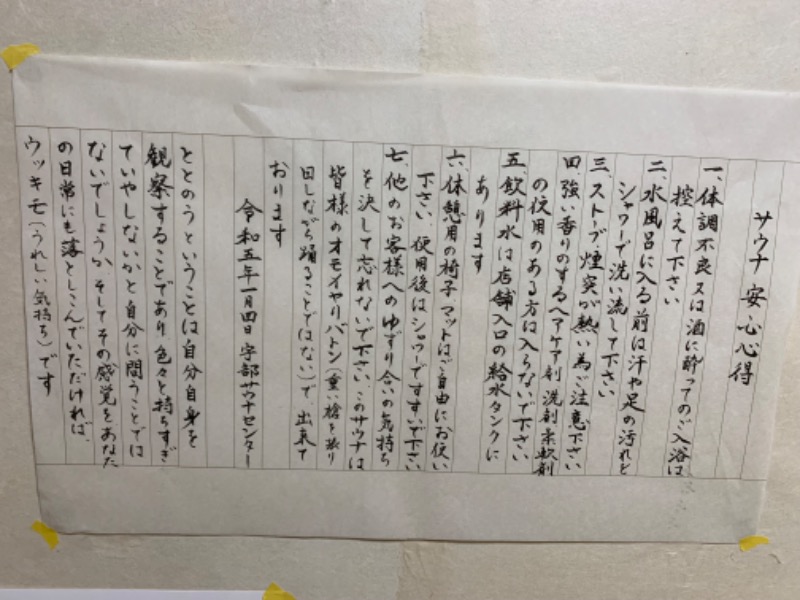 サウナ安心心得
一、体調不良又は酒に酔ってのご入浴は
控えて下さい
二、水風呂に入る前は汗や足の汚れを
シャワーで洗い流して下さい
三、ストーブ、煙突が熱い為ご注意下さい
四、強い香りのするヘアケア剤洗剤柔軟剤
の使用のある方は入らないで下さい
五、飲料水は店舗入口の給水タンクに
あります
六、休憩用の椅子、マットはご自由にお使い
下さい、使用後はシャワーですすいで下さい
七、他のお客様へのゆずり合いの気持ち
を決して忘れないで下さい、このサウナは
皆様のオモイヤリバトン(重い槍を振り
回しながら踊ることではない)で、出来て
おります
令和五年一月四日 宇部サウナセンター
ととのうということは自分自身を
観察することであり、色々と持ちすぎ
ていやしないかと自分に問うことでは
ないでしょうか、そしてその感覚をあなた
の日常にも落としこんでいただければ、
ウッキモ(うれしい気持ち)です